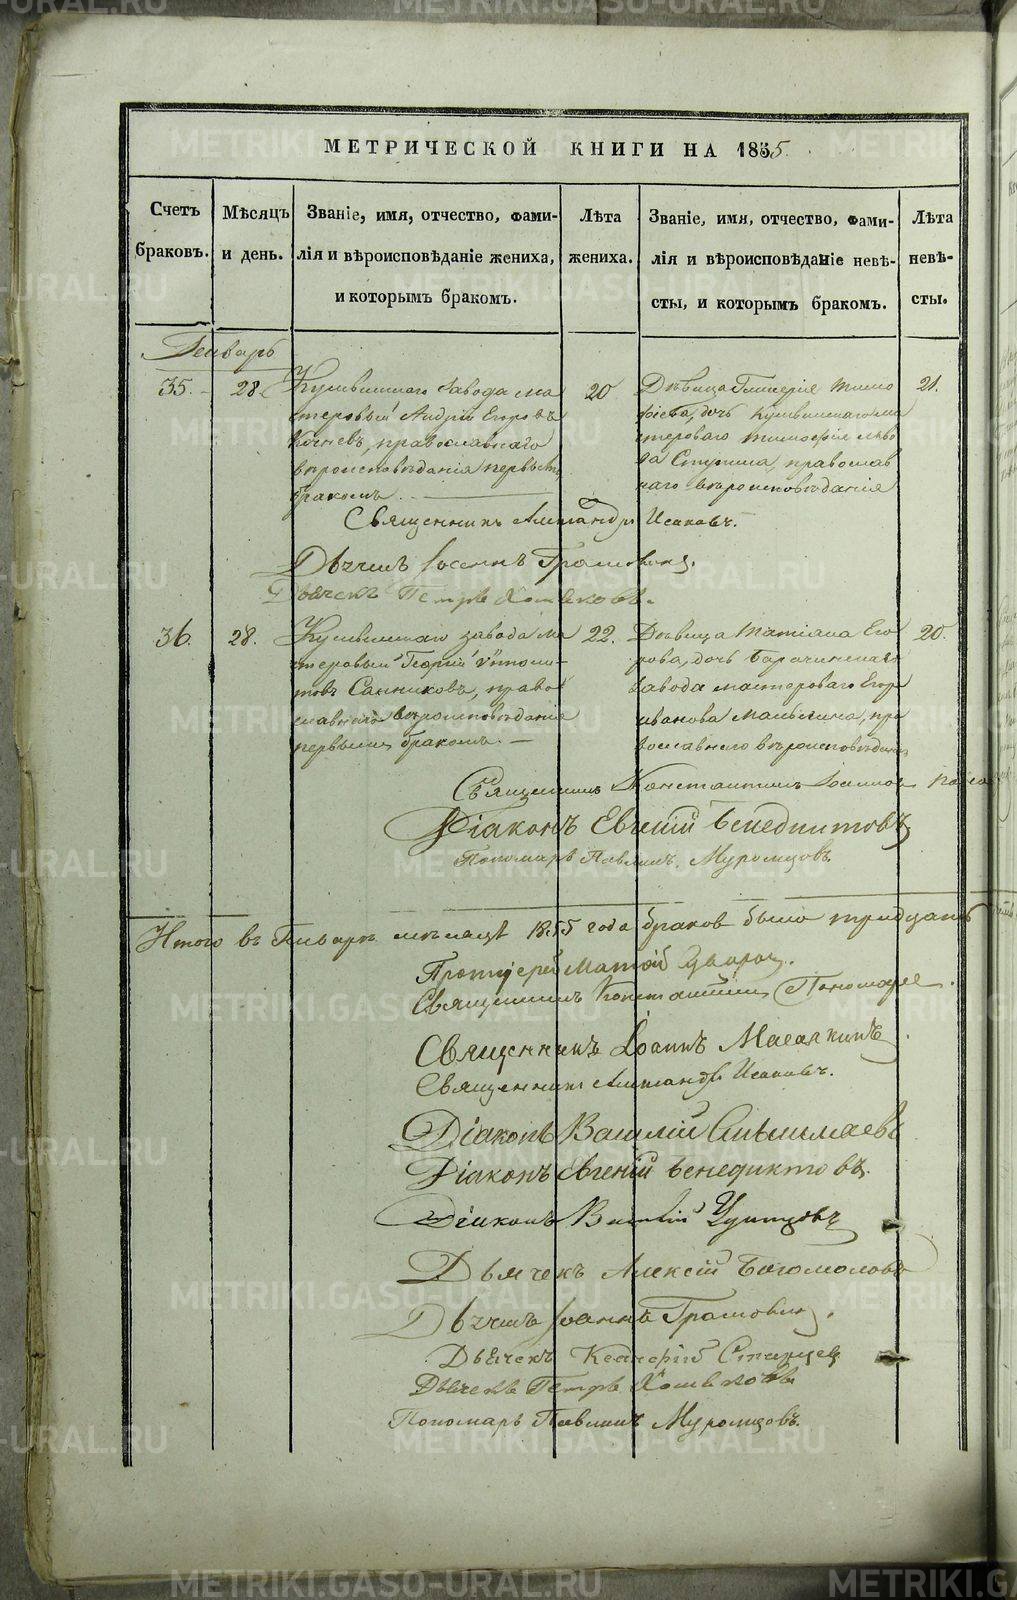 МЕТРИЧЕСКОЙ КНИГИ НА 1855.
Счетъ браковъ.
Мѣсяцъ и день.
Званіе, имя, отчество, фами-
лія и вѣроисповѣданіе жениха,
и которымъ бракомъ.
Лѣта жениха.
Званіе, имя, отчество, фами-
лія и вѣроисповѣданіе невѣ-
сты, и которымъ бракомъ.
Лѣта невѣ-
сты.
Генварь
35.
28.
Кушвинскаго завода ма
стеровый Андрей Егоровъ
православнаго
вѣроисповѣданія первымъ
бракомъ.
20
Дѣвица Гликерія Тимо
феева, дочь Кушвинскаго ма
стероваго Тимофея
православ
наго вѣроисповѣданія
21.
Священникъ Александръ Исаковъ.
Дьячекъ
Дьячекъ Петръ Хомяковъ.
36.
28.
Кушвинскаго завода ма
стеровый Георгій Иполи-
товъ Санниковъ, право
славнаго вѣроисповѣданія
первымъ бракомъ.
22.
Дѣвица Татіана Его
рова, дочь Баранчинскаго
завода мастероваго Егора
Иванова пра
вославнаго вѣроисповѣданія
20.
Священникъ Константинъ
Діаконъ Евгеній Бенедиктовъ
Пономарь Павлинъ Муромцовъ.
Итого въ Генварѣ мѣсяцѣ 1855 года браков было тридцать
Протоіерей
Священникъ Константинъ Пономарев.
Священникъ Іоаннъ
Священникъ Александръ Исаковъ.
Діаконъ Василій
Діаконъ Евгеній Бенедиктовъ.
Діаконъ Василій
Дьячекъ Алексій Богомоловъ
Дьячекъ Іоаннъ
Дьячекъ
Дьячекъ Петръ Хомяковъ
Пономарь Павлинъ Муромцовъ.
METRIKI.GASO-URAL.RU